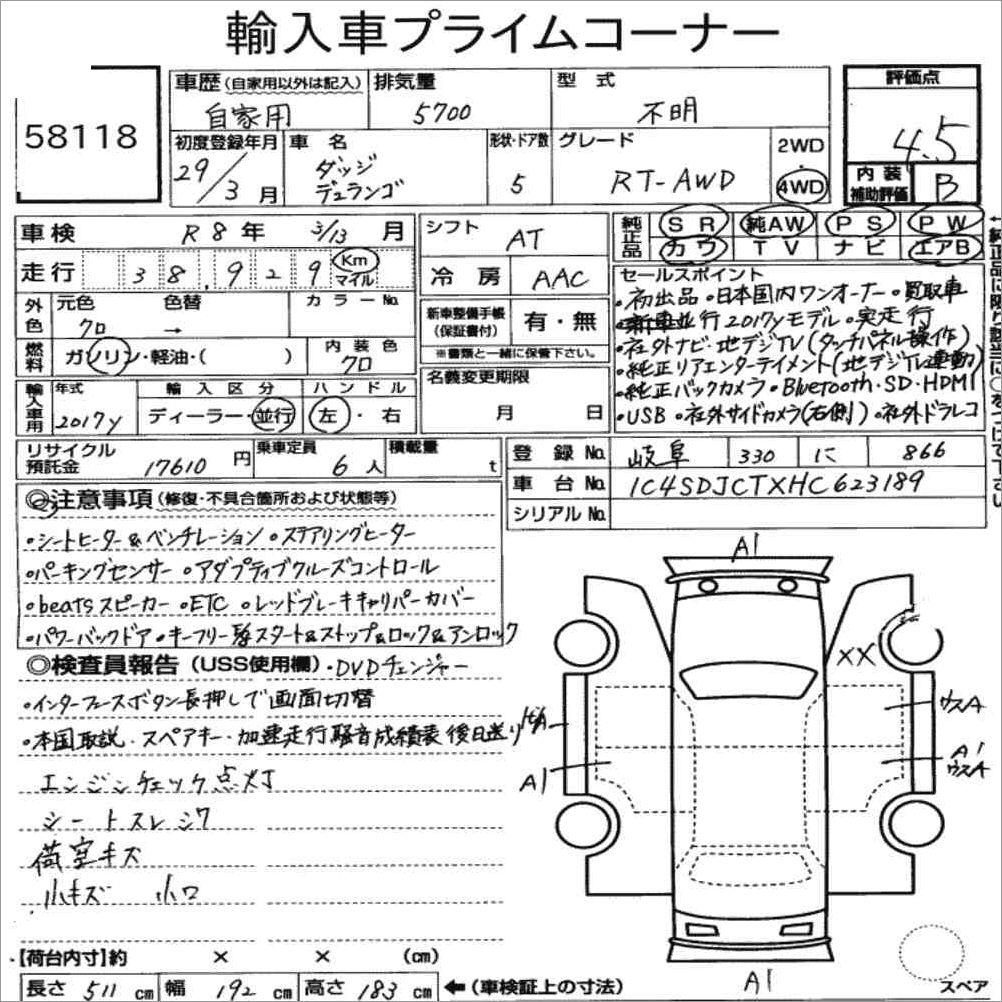 輸入車プライムコーナー
58118
車歴 (自家用以外は記入) 自家用
排気量 5700
型式 不明
評価点 4.5
内装補助評価 B
初度登録年月 29/3月
車名 ダッジ デュランゴ
形状・ドア数 5
グレード RT-AWD
2WD・4WD
車検 R8年 3/13 月
シフト AT
純正品 SR 純AW PS PW
カワ TV ナビ エアB
走行 38,929 Km マイル
冷房 AAC
外色 元色 クロ 色替 → カラーNo.
新車整備手帳(保証書付) 有・無
※書類と一緒に保管下さい。
燃料 ガソリン・軽油・( )
内装色 クロ
名義変更期限 月 日
輸入車用 年式 2017y
輸入区分 ディーラー・並行
ハンドル 左・右
セールスポイント
・初出品・日本国内ワンオーナー・買取車
・新車並行2017yモデル・実走行
・社外ナビ・地デジTV(タッチパネル操作)
・純正リアエンターテイメント(地デジTV連動)
・純正バックカメラ・Bluetooth・SD・HDMI
・USB・社外サイドカメラ(右側)・社外ドラレコ
リサイクル預託金 17610円
乗車定員 6人
積載量 t
登録No. 岐阜 330 に 866
車台No. 1C4SDJCTXHC623189
シリアルNo.
◎注意事項(修復・不具合箇所および状態等)
・シートヒーター&ベンチレーション・ステアリングヒーター
・パーキングセンサー・アダプティブクルーズコントロール
・beatsスピーカー・ETC・レッドブレーキキャリパーカバー
・パワーバックドア・キーフリー スタート&ストップ&ロック&アンロック
◎検査員報告(USS使用欄)・DVDチェンジャー
・インターフェースボタン長押しで画面切替
・本国取説・スペアキー・加速走行騒音成績表後日送り
エンジンチェック点灯
シートスレシワ
荷室キズ
小キズ 小ワ
A1
XX
ウスA
A1
ウスA
A1
A1
スペア
【荷台内寸】約 × × (cm)
長さ 511cm 幅 192cm 高さ 183cm ←(車検証上の寸法)